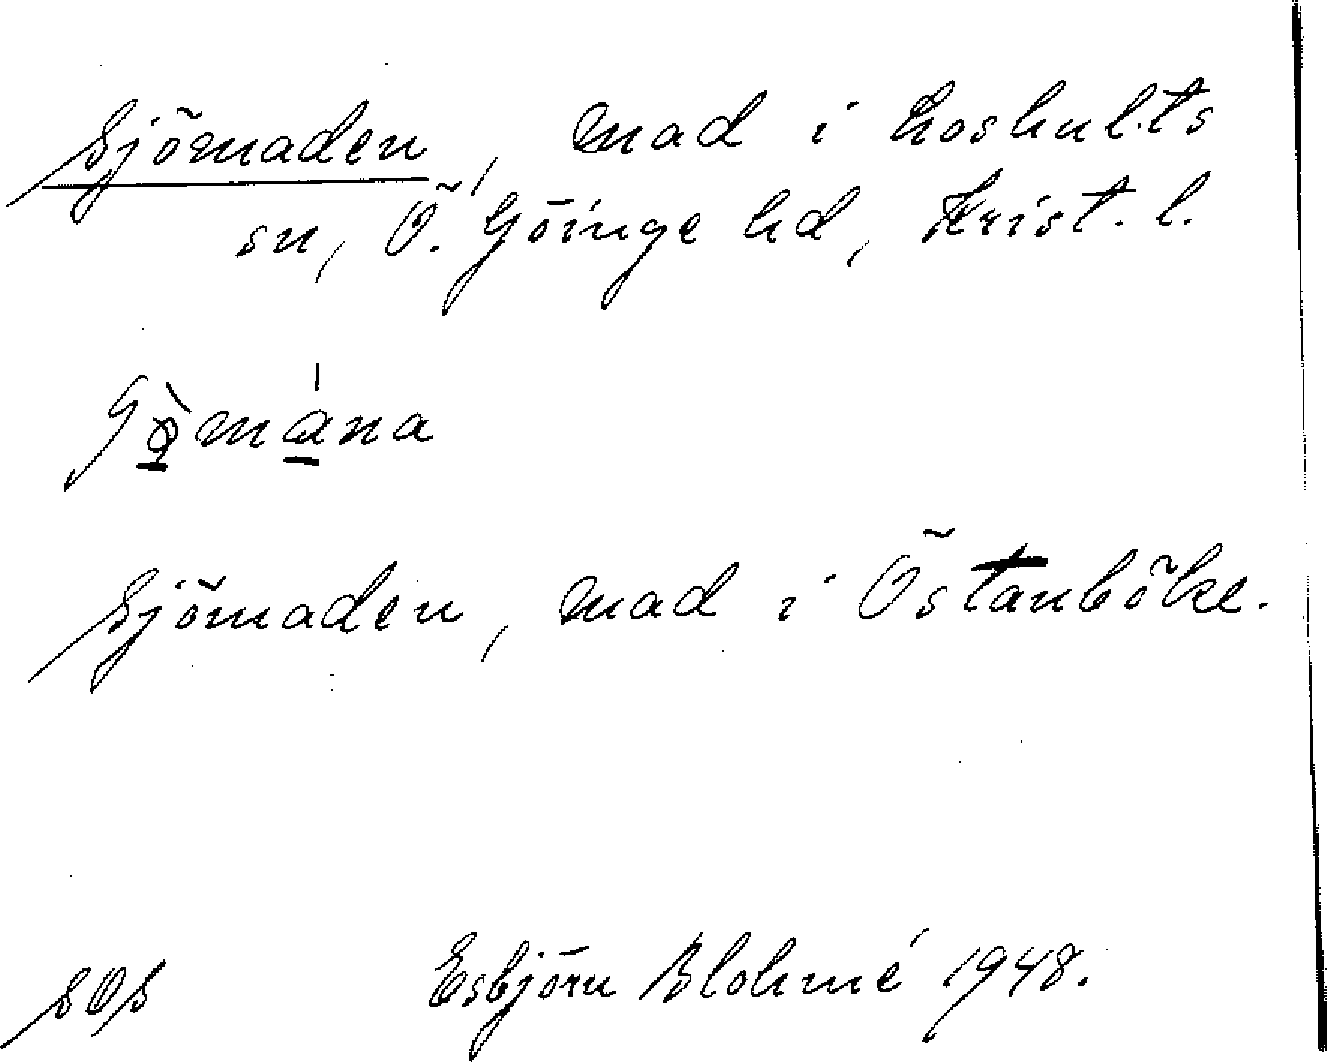 Sjömaden, mad i Loshults
sn, Ö. Göinge hd, Krist. l.
Sjömaden, mad i Östanböke.
SOS Esbjörn Blohmé 1948.